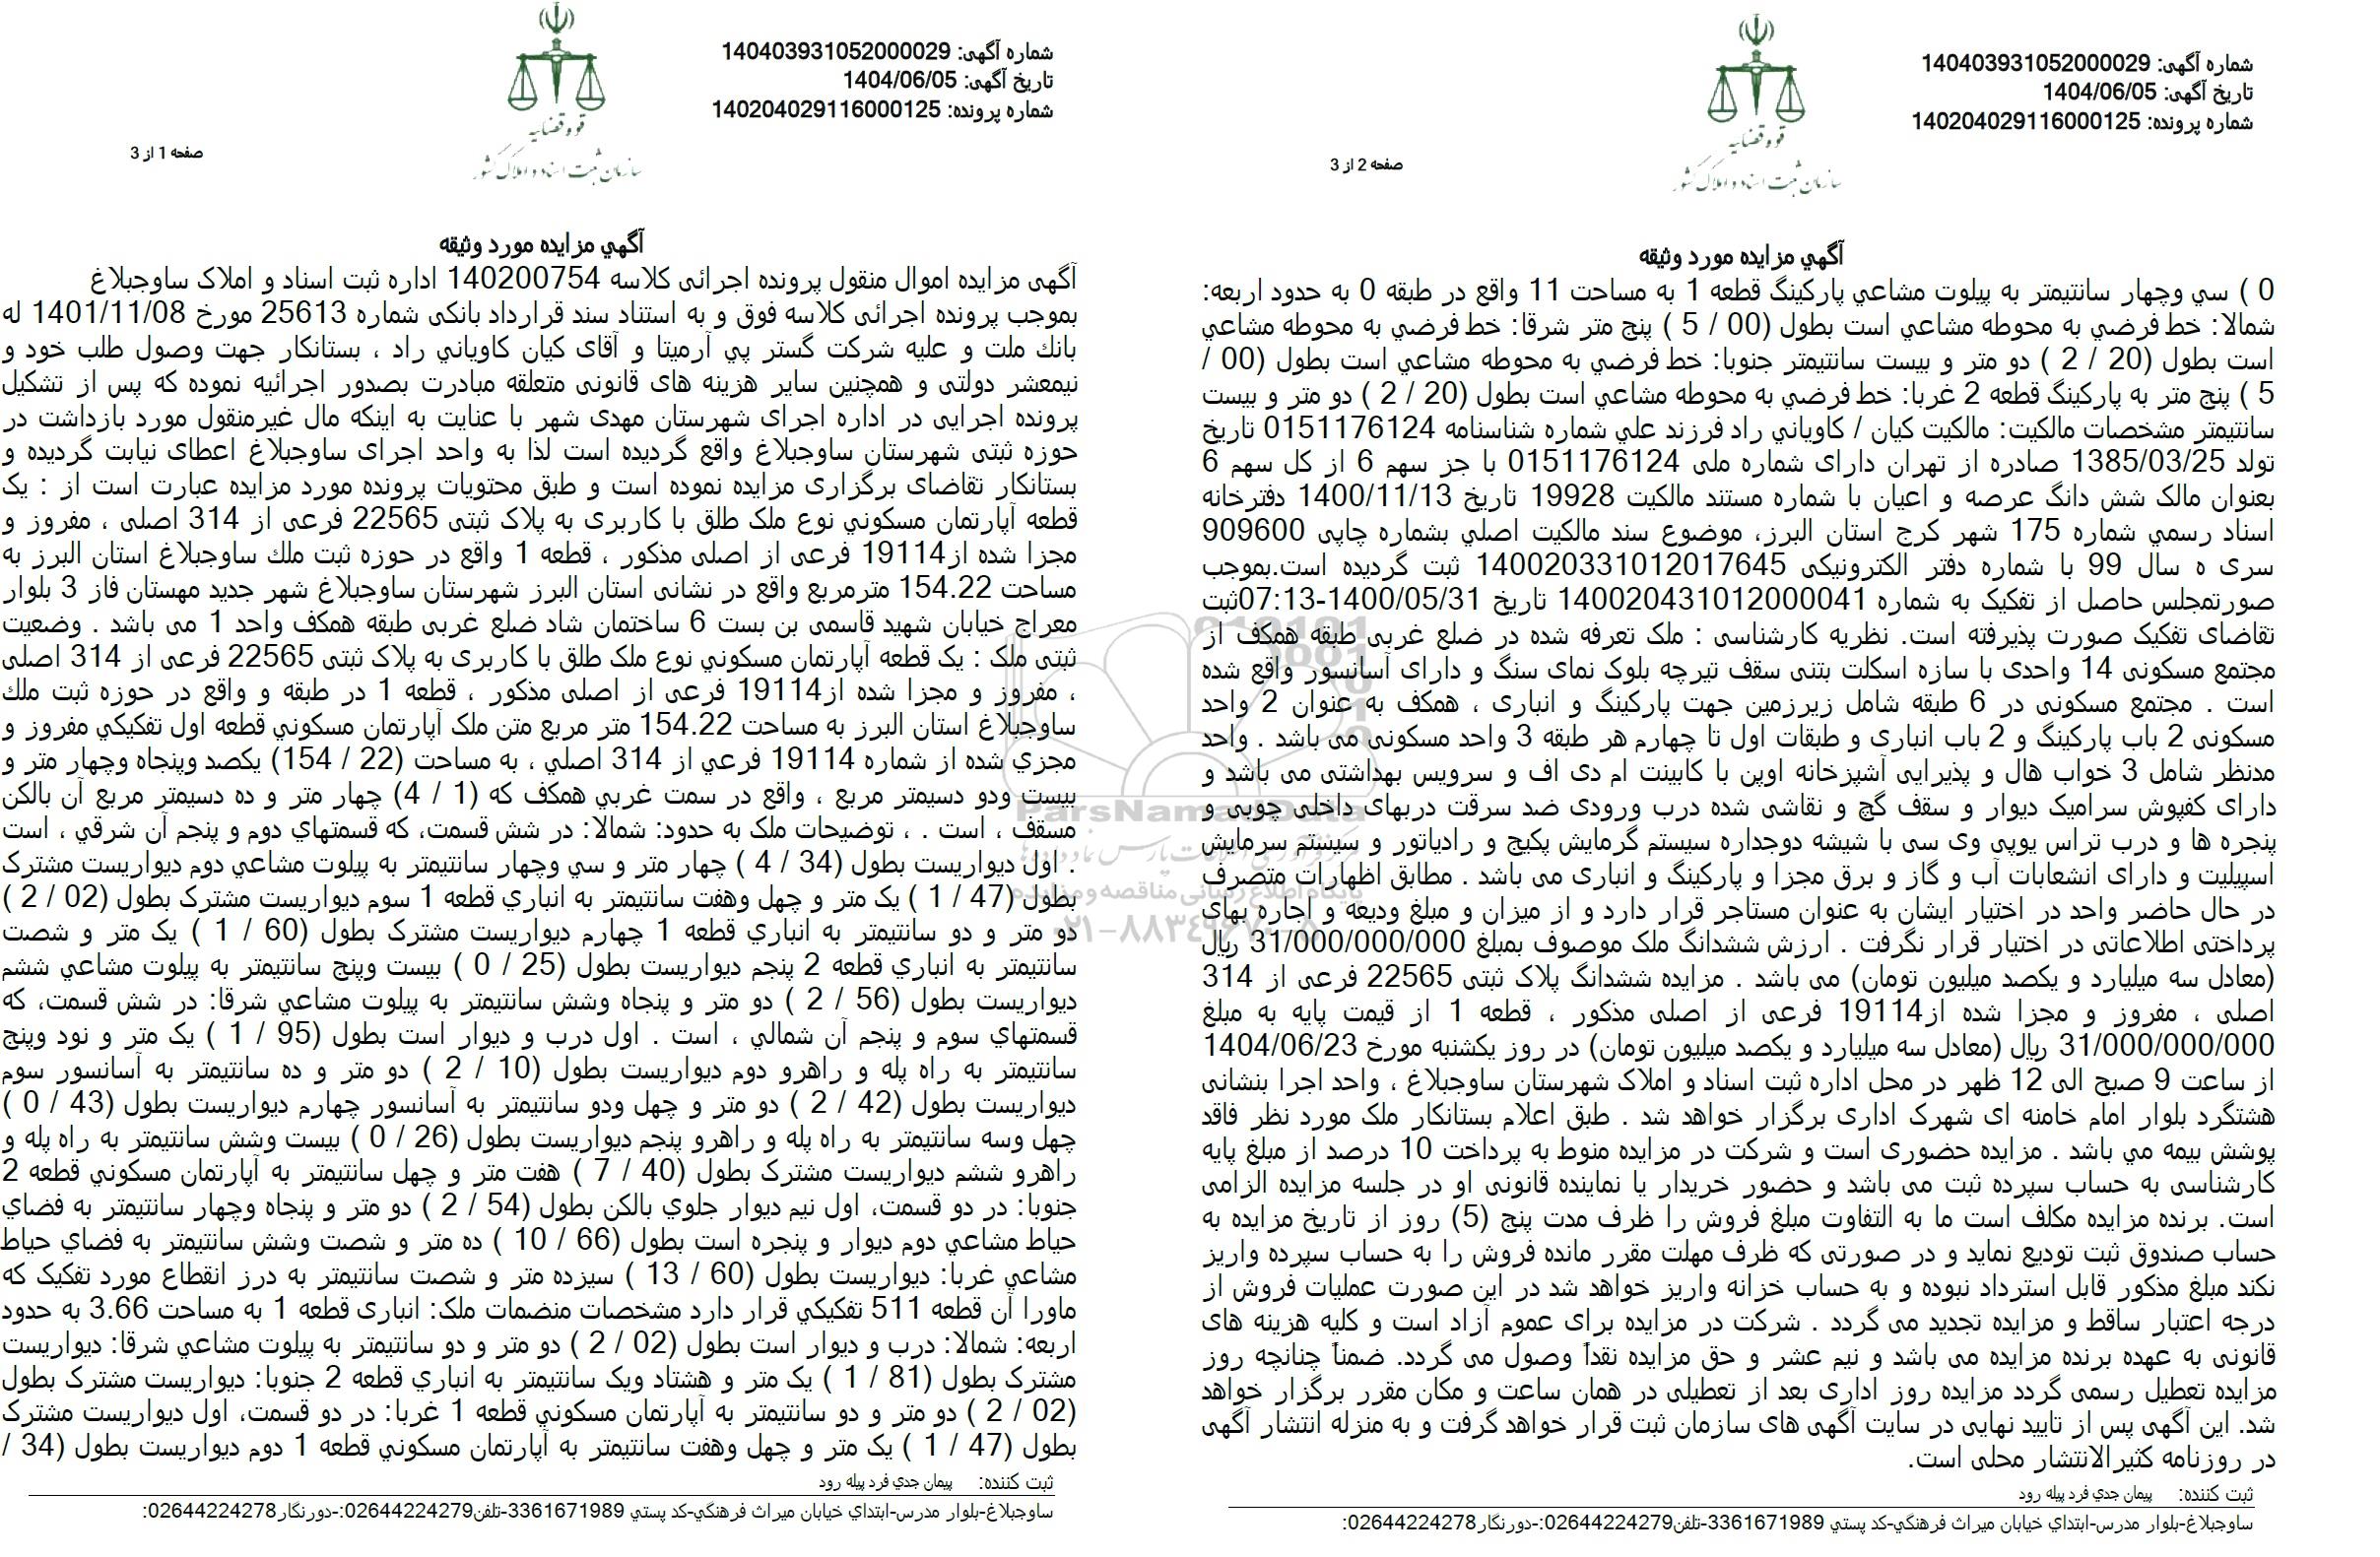 شماره آگهی: 140403931052000029
تاریخ آگهی: 1404/06/05
شماره پرونده: 140204029116000125
قوه قضاییه
سازمان ثبت اسناد و املاک کشور
صفحه 1 از 3
آگهي مزايده مورد وثيقه
آگهی مزایده اموال منقول پرونده اجرائی کلاسه 140200754 اداره ثبت اسناد و املاک ساوجبلاغ
بموجب پرونده اجرائی کلاسه فوق و به استناد سند قرارداد بانکی شماره 25613 مورخ 1401/11/08 له
بانك ملت و علیه شرکت گستر پي آرميتا و آقای کیان کاوياني راد ، بستانکار جهت وصول طلب خود و
نیمعشر دولتی و همچنین سایر هزینه های قانونی متعلقه مبادرت بصدور اجرائیه نموده که پس از تشکیل
پرونده اجرایی در اداره اجرای شهرستان مهدی شهر با عنایت به اینکه مال غیرمنقول مورد بازداشت در
حوزه ثبتی شهرستان ساوجبلاغ واقع گردیده است لذا به واحد اجرای ساوجبلاغ اعطای نیابت گردیده و
بستانکار تقاضای برگزاری مزایده نموده است و طبق محتویات پرونده مورد مزایده عبارت است از : یک
قطعه آپارتمان مسکوني نوع ملک طلق با کاربری به پلاک ثبتی 22565 فرعی از 314 اصلی ، مفروز و
مجزا شده از19114 فرعی از اصلی مذکور ، قطعه 1 واقع در حوزه ثبت ملك ساوجبلاغ استان البرز به
مساحت 154.22 مترمربع واقع در نشانی استان البرز شهرستان ساوجبلاغ شهر جدید مهستان فاز 3 بلوار
معراج خیابان شهید قاسمی بن بست 6 ساختمان شاد ضلع غربی طبقه همکف واحد 1 می باشد . وضعیت
ثبتی ملک : یک قطعه آپارتمان مسکوني نوع ملک طلق با کاربری به پلاک ثبتی 22565 فرعی از 314 اصلی
، مفروز و مجزا شده از19114 فرعی از اصلی مذکور ، قطعه 1 در طبقه و واقع در حوزه ثبت ملك
ساوجبلاغ استان البرز به مساحت 154.22 متر مربع متن ملک آپارتمان مسکوني قطعه اول تفکيکي مفروز و
مجزي شده از شماره 19114 فرعي از 314 اصلي ، به مساحت (22 / 154) يکصد وپنجاه وچهار متر و
بيست ودو دسيمتر مربع ، واقع در سمت غربي همکف که (1 / 4) چهار متر و ده دسيمتر مربع آن بالکن
مسقف ، است . ، توضیحات ملک به حدود: شمالا: در شش قسمت، که قسمتهاي دوم و پنجم آن شرقي ، است
. اول ديواريست بطول (34 / 4 ) چهار متر و سي وچهار سانتيمتر به پيلوت مشاعي دوم ديواريست مشترک
بطول (47 / 1 ) يک متر و چهل وهفت سانتيمتر به انباري قطعه 1 سوم ديواريست مشترک بطول (02 / 2 )
دو متر و دو سانتيمتر به انباري قطعه 1 چهارم ديواريست مشترک بطول (60 / 1 ) يک متر و شصت
سانتيمتر به انباري قطعه 2 پنجم ديواريست بطول (25 / 0 ) بيست وپنج سانتيمتر به پيلوت مشاعي ششم
ديواريست بطول (56 / 2 ) دو متر و پنجاه وشش سانتيمتر به پيلوت مشاعي شرقا: در شش قسمت، که
قسمتهاي سوم و پنجم آن شمالي ، است . اول درب و ديوار است بطول (95 / 1 ) يک متر و نود وپنج
سانتيمتر به راه پله و راهرو دوم ديواريست بطول (10 / 2 ) دو متر و ده سانتيمتر به آسانسور سوم
ديواريست بطول (42 / 2 ) دو متر و چهل ودو سانتيمتر به آسانسور چهارم ديواريست بطول (43 / 0 )
چهل وسه سانتيمتر به راه پله و راهرو پنجم ديواريست بطول (26 / 0 ) بيست وشش سانتيمتر به راه پله و
راهرو ششم ديواريست مشترک بطول (40 / 7 ) هفت متر و چهل سانتيمتر به آپارتمان مسکوني قطعه 2
جنوبا: در دو قسمت، اول نيم ديوار جلوي بالکن بطول (54 / 2 ) دو متر و پنجاه وچهار سانتيمتر به فضاي
حياط مشاعي دوم ديوار و پنجره است بطول (66 / 10 ) ده متر و شصت وشش سانتيمتر به فضاي حياط
مشاعي غربا: ديواريست بطول (60 / 13 ) سيزده متر و شصت سانتيمتر به درز انقطاع مورد تفکيک که
ماورا آن قطعه 511 تفکيکي قرار دارد مشخصات منضمات ملک: انباری قطعه 1 به مساحت 3.66 به حدود
اربعه: شمالا: درب و ديوار است بطول (02 / 2 ) دو متر و دو سانتيمتر به پيلوت مشاعي شرقا: ديواريست
مشترک بطول (81 / 1 ) يک متر و هشتاد ويک سانتيمتر به انباري قطعه 2 جنوبا: ديواريست مشترک بطول
(02 / 2 ) دو متر و دو سانتيمتر به آپارتمان مسکوني قطعه 1 غربا: در دو قسمت، اول ديواريست مشترک
بطول (47 / 1 ) يک متر و چهل وهفت سانتيمتر به آپارتمان مسکوني قطعه 1 دوم ديواريست بطول (34 /
ثبت کننده: پيمان جدي فرد پيله رود
ساوجبلاغ-بلوار مدرس-ابتداي خيابان ميراث فرهنگي-کد پستي 3361671989-تلفن02644224279:-دورنگار02644224278:
شماره آگهی: 140403931052000029
تاریخ آگهی: 1404/06/05
شماره پرونده: 140204029116000125
قوه قضاییه
سازمان ثبت اسناد و املاک کشور
صفحه 2 از 3
آگهي مزايده مورد وثيقه
0 ) سي وچهار سانتيمتر به پيلوت مشاعي پارکينگ قطعه 1 به مساحت 11 واقع در طبقه 0 به حدود اربعه:
شمالا: خط فرضي به محوطه مشاعي است بطول (00 / 5 ) پنج متر شرقا: خط فرضي به محوطه مشاعي
است بطول (20 / 2 ) دو متر و بيست سانتيمتر جنوبا: خط فرضي به محوطه مشاعي است بطول (00 /
5 ) پنج متر به پارکينگ قطعه 2 غربا: خط فرضي به محوطه مشاعي است بطول (20 / 2 ) دو متر و بيست
سانتيمتر مشخصات مالکیت: مالکیت کیان / کاوياني راد فرزند علي شماره شناسنامه 0151176124 تاریخ
تولد 1385/03/25 صادره از تهران دارای شماره ملی 0151176124 با جز سهم 6 از کل سهم 6
بعنوان مالک شش دانگ عرصه و اعیان با شماره مستند مالکیت 19928 تاریخ 1400/11/13 دفترخانه
اسناد رسمي شماره 175 شهر کرج استان البرز، موضوع سند مالکیت اصلي بشماره چاپی 909600
سری ه سال 99 با شماره دفتر الکترونیکی 140020331012017645 ثبت گردیده است.بموجب
صورتمجلس حاصل از تفکیک به شماره 140020431012000041 تاریخ 1400/05/31-07:13ثبت
تقاضای تفکیک صورت پذیرفته است. نظریه کارشناسی : ملک تعرفه شده در ضلع غربی طبقه همکف از
مجتمع مسکونی 14 واحدی با سازه اسکلت بتنی سقف تیرچه بلوک نمای سنگ و دارای آسانسور واقع شده
است . مجتمع مسکونی در 6 طبقه شامل زیرزمین جهت پارکینگ و انباری ، همکف به عنوان 2 واحد
مسکونی 2 باب پارکینگ و 2 باب انباری و طبقات اول تا چهارم هر طبقه 3 واحد مسکونی می باشد . واحد
مدنظر شامل 3 خواب هال و پذیرایی آشپزخانه اوپن با کابینت ام دی اف و سرویس بهداشتی می باشد و
دارای کفپوش سرامیک دیوار و سقف گچ و نقاشی شده درب ورودی ضد سرقت دربهای داخلی چوبی و
پنجره ها و درب تراس یوپی وی سی با شیشه دوجداره سیستم گرمایش پکیج و رادیاتور و سیستم سرمایش
اسپیلیت و دارای انشعابات آب و گاز و برق مجزا و پارکینگ و انباری می باشد . مطابق اظهارات متصرف
در حال حاضر واحد در اختیار ایشان به عنوان مستاجر قرار دارد و از میزان و مبلغ ودیعه و اجاره بهای
پرداختی اطلاعاتی در اختیار قرار نگرفت . ارزش ششدانگ ملک موصوف بمبلغ 31/000/000/000 ریال
(معادل سه میلیارد و یکصد میلیون تومان) می باشد . مزایده ششدانگ پلاک ثبتی 22565 فرعی از 314
اصلی ، مفروز و مجزا شده از19114 فرعی از اصلی مذکور ، قطعه 1 از قیمت پایه به مبلغ
31/000/000/000 ریال (معادل سه میلیارد و یکصد میلیون تومان) در روز یکشنبه مورخ 1404/06/23
از ساعت 9 صبح الی 12 ظهر در محل اداره ثبت اسناد و املاک شهرستان ساوجبلاغ ، واحد اجرا بنشانی
هشتگرد بلوار امام خامنه ای شهرک اداری برگزار خواهد شد . طبق اعلام بستانکار ملک مورد نظر فاقد
پوشش بیمه می باشد . مزایده حضوری است و شرکت در مزایده منوط به پرداخت 10 درصد از مبلغ پایه
کارشناسی به حساب سپرده ثبت می باشد و حضور خریدار یا نماینده قانونی او در جلسه مزایده الزامی
است. برنده مزایده مکلف است ما به التفاوت مبلغ فروش را ظرف مدت پنج (5) روز از تاریخ مزایده به
حساب صندوق ثبت تودیع نماید و در صورتی که ظرف مهلت مقرر مانده فروش را به حساب سپرده واریز
نکند مبلغ مذکور قابل استرداد نبوده و به حساب خزانه واریز خواهد شد در این صورت عملیات فروش از
درجه اعتبار ساقط و مزایده تجدید می گردد . شرکت در مزایده برای عموم آزاد است و کلیه هزینه های
قانونی به عهده برنده مزایده می باشد و نیم عشر و حق مزایده نقداً وصول می گردد. ضمناً چنانچه روز
مزایده تعطیل رسمی گردد مزایده روز اداری بعد از تعطیلی در همان ساعت و مکان مقرر برگزار خواهد
شد. این آگهی پس از تایید نهایی در سایت آگهی های سازمان ثبت قرار خواهد گرفت و به منزله انتشار آگهی
در روزنامه کثیرالانتشار محلی است.
ثبت کننده: پيمان جدي فرد پيله رود
ساوجبلاغ-بلوار مدرس-ابتداي خيابان ميراث فرهنگي-کد پستي 3361671989-تلفن02644224279:-دورنگار02644224278:
ParsNamadData
پایگاه اطلاع رسانی مناقصه و مزایده
۰۲۱-۸۸۳۴۹۶۷۰-۵